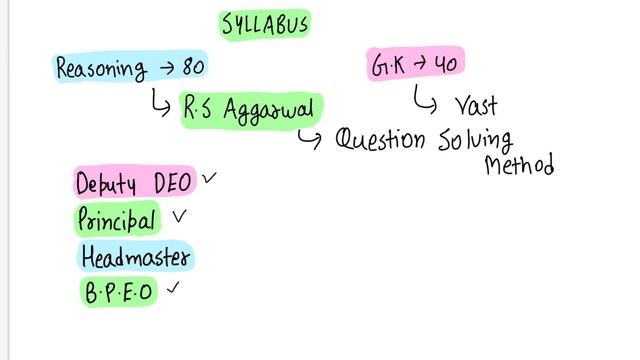 SYLLABUS
Reasoning → 80
G.K → 40
↳ R.S Aggarwal
↳ Vast
↳ Question Solving
Method
Deputy DEO ✓
Principal ✓
Headmaster
B.P.E.O ✓